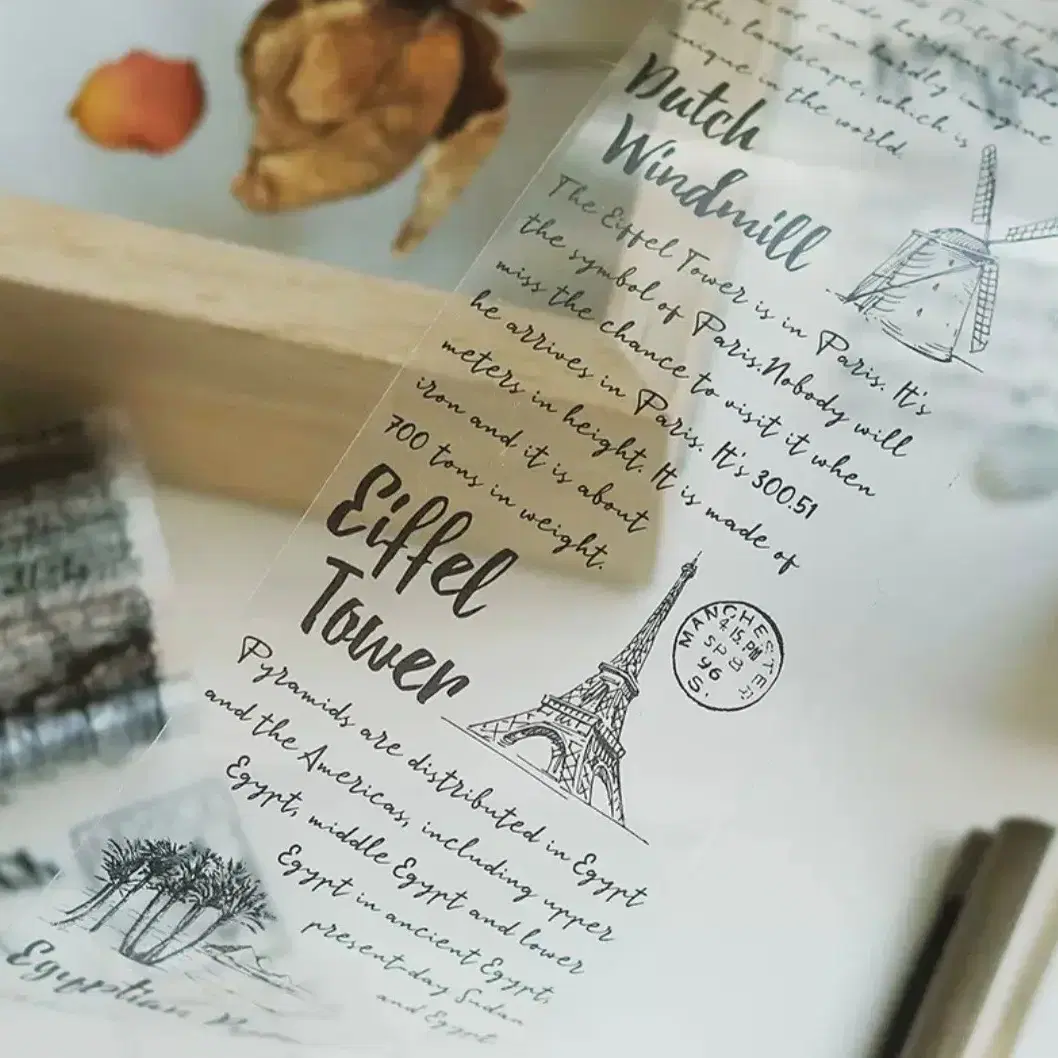 we can hardly imagine
this landscape, which is
unique in the world.
Dutch
Windmill
The Eiffel Tower is in Paris. It's
the symbol of Paris.Nobody will
miss the chance to visit it when
he arrives in Paris. It's 300.51
meters in height. It is made of
iron and it is about
700 tons in weight.
Eiffel
Tower
MANCHESTER
4.15.PM
SP 8
96
S.
Pyramids are distributed in Egypt
and the Americas, including upper
Egypt, middle Egypt and lower
Egypt in ancient Egypt,
present-day Sudan
and Egypt.
Egyptian